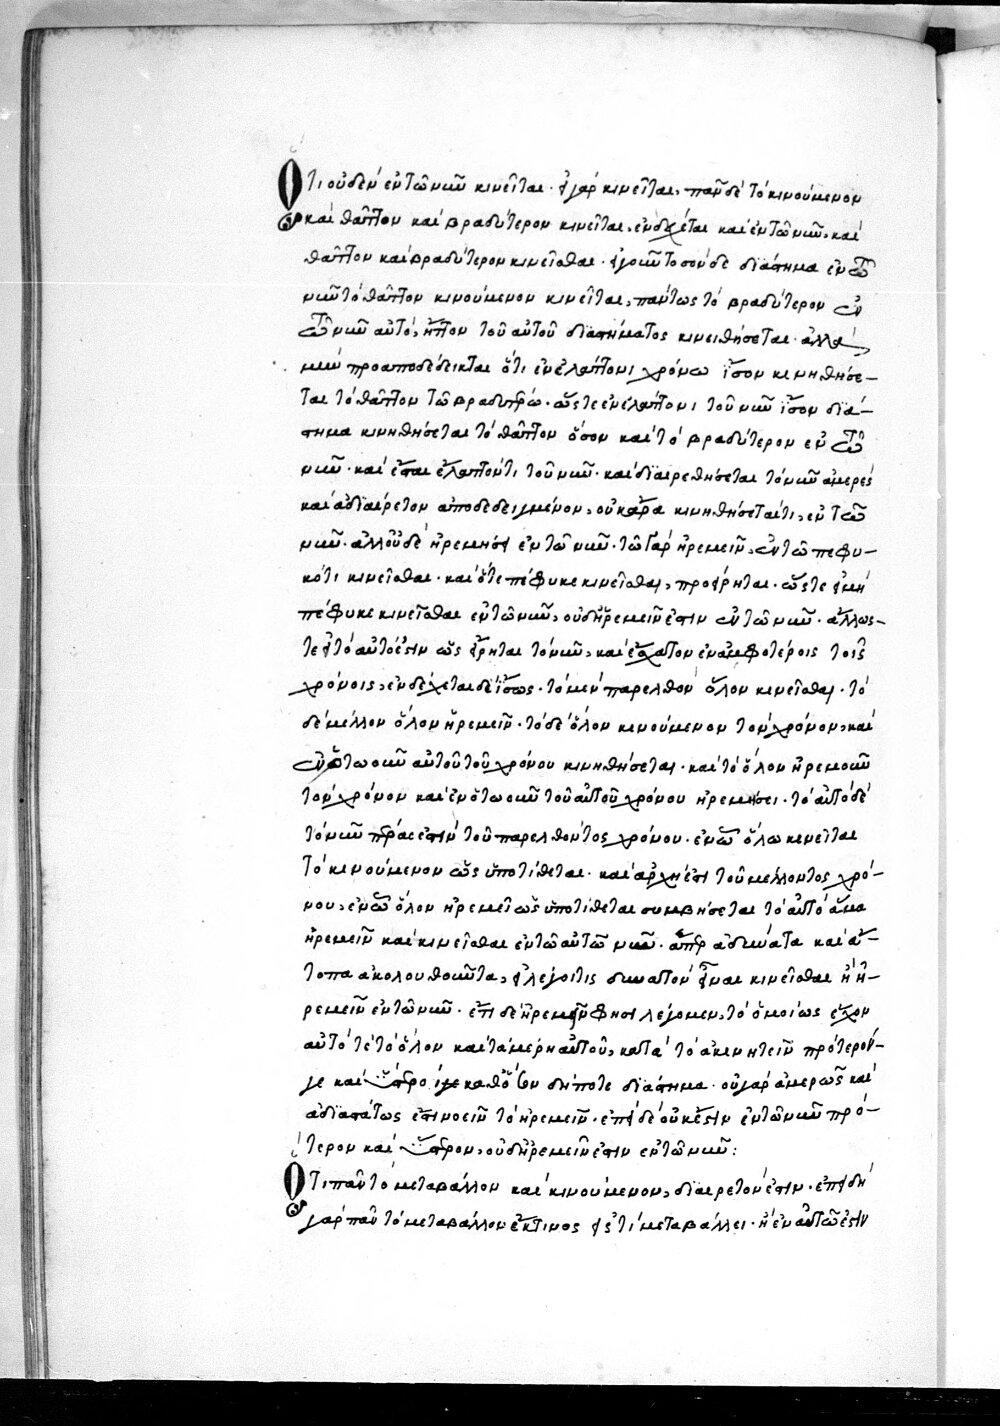 Ὅτι οὐδὲν ἐν τῶ νῦν κινεῖται· εἰ γὰρ κινεῖται, πᾶν δὲ τὸ κινούμενον
καὶ θᾶττον καὶ βραδύτερον κινεῖται, ἐνδέχεται καὶ ἐν τῶ νῦν, καὶ
θᾶττον καὶ βραδύτερον κινεῖσθαι· εἰ γοῦν τοσόνδε διάστημα ἐν τῶ
νῦν τὸ θᾶττον κινούμενον κινεῖται, πάντως τὸ βραδύτερον ἐν
τῶ νῦν αὐτὸ, ἧττον τοῦ αὐτοῦ διαστήματος κινηθήσεται· ἀλλὰ
μὴν προαποδέδεικται ὅτι ἐν ἐλάττονι χρόνω ἴσον κινηθήσε-
ται τὸ θᾶττον τῶ βραδυτέρω· ὥστε ἐν ἐλάττονι τοῦ νῦν ἴσον διά-
στημα κινηθήσεται τὸ θᾶττον ὅσον καὶ τὸ βραδύτερον ἐν τῶ
νῦν· καὶ ἔσται ἔλαττόν τι τοῦ νῦν· καὶ διαιρεθήσεται τὸ νῦν ἀμερὲς
καὶ ἀδιαίρετον ἀποδεδειγμένον, οὐκ ἄρα κινηθήσεταί τι, ἐν τῶ
νῦν· ἀλλ' οὐδὲ ἠρεμήσει ἐν τῶ νῦν· τὸ γὰρ ἠρεμεῖν, ἐν τῶ πεφυ-
κότι κινεῖσθαι· καὶ ὅτε πέφυκε κινεῖσθαι, προείρηται· ὥστε εἰ μὴ
πέφυκε κινεῖσθαι ἐν τῶ νῦν, οὐδ' ἠρεμεῖν ἔστιν ἐν τῶ νῦν· ἄλλως
τε εἰ τὸ αὐτό ἐστιν ὡς εἴρηται τὸ νῦν, καὶ ἔσχατον ἐν ἀμφοτέροις τοῖς
χρόνοις, ἐνδέχεται δὲ ἴσως· τὸ μὲν παρελθὸν ὅλον κινεῖσθαι· τὸ
δὲ μέλλον ὅλον ἠρεμεῖν· τὸ δὲ ὅλον κινούμενον τὸν χρόνον, καὶ
ἐν ὁτωοῦν αὐτοῦ τοῦ χρόνου κινηθήσεται· καὶ τὸ ὅλον ἠρεμοῦν
τὸν χρόνον καὶ ἐν ὁτωοῦν τοῦ αὐτοῦ χρόνου ἠρεμήσει· τὸ αὐτὸ δὲ
τὸ νῦν πέρας ἐστὶν τοῦ παρελθόντος χρόνου· ἐν ῶ ὅλω κινεῖται
τὸ κινούμενον ὡς ὑποτίθεται· καὶ ἀρχή ἐστι τοῦ μέλλοντος χρό-
νου, ἐν ῶ ὅλον ἠρεμεῖ ὡς ὑποτίθεται συμβήσεται τὸ αὐτὸ ἅμα
ἠρεμεῖν καὶ κινεῖσθαι ἐν τῶ αὐτῶ νῦν· ἅπερ ἀδύνατα καὶ ἄ-
τοπα ἀκολουθοῦντα, εἰ λέγοι τις δυνατὸν εἶναι κινεῖσθαι ἢ ἠ-
ρεμεῖν ἐν τῶ νῦν· ἔτι δὲ ἠρεμεῖν φησι λέγομεν, τὸ ὁμοίως ἔχον
αὐτό τε τὸ ὅλον καὶ τὰ μέρη αὐτοῦ, κατὰ τὸ ἀκινητεῖν πρότερόν
γε καὶ ὕστερόν γε καθ' ὅ τον δήποτε διάστημα· οὐ γὰρ ἀμερῶς καὶ
ἀδιαστάτως ἐπινοεῖν τὸ ἠρεμεῖν· ἐπεὶ δὲ οὐκ ἔστιν ἐν τῶ νῦν πρό-
τερον καὶ ὕστερον, οὐδ' ἠρεμεῖν ἔστιν ἐν τῶ νῦν:
Ὅτι πᾶν τὸ μεταβάλλον καὶ κινούμενον, διαιρετόν ἐστιν· ἐπειδὴ
γὰρ πᾶν τὸ μεταβάλλον ἔκ τινος εἴς τι μεταβάλλει· ἢ ἐν αὐτῶ ἐστὶν